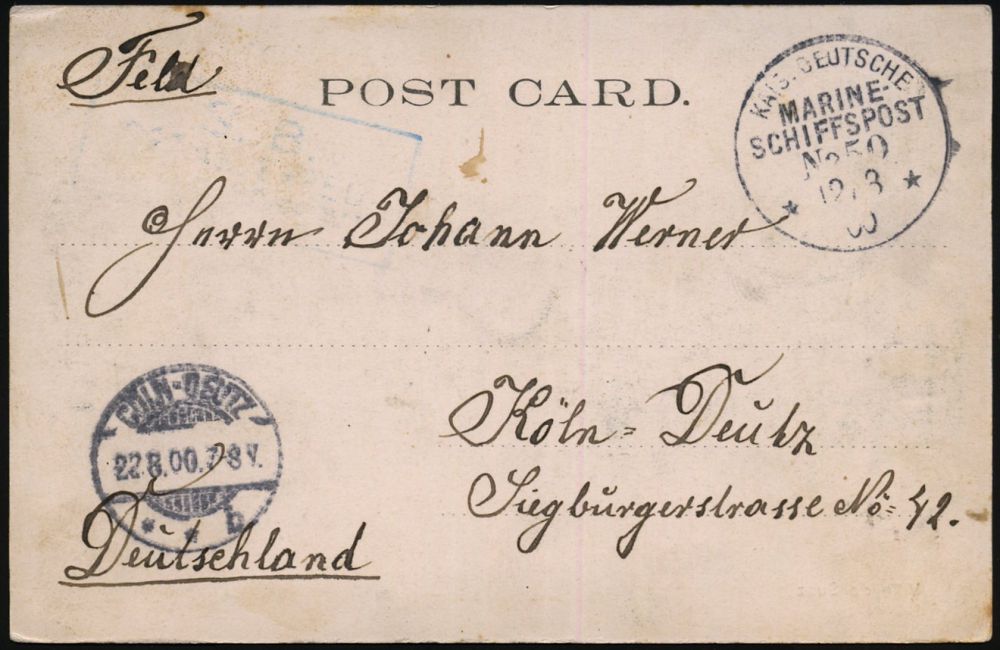 Feld
POST CARD.
KAIS. DEUTSCHE
MARINE-
SCHIFFSPOST
No 50
12/8
00
Herrn Johann Werner
Köln=Deutz
Siegburgerstrasse No= 42.
CÖLN-DEUTZ
22.8.00.7-8V.
* * b
Deutschland